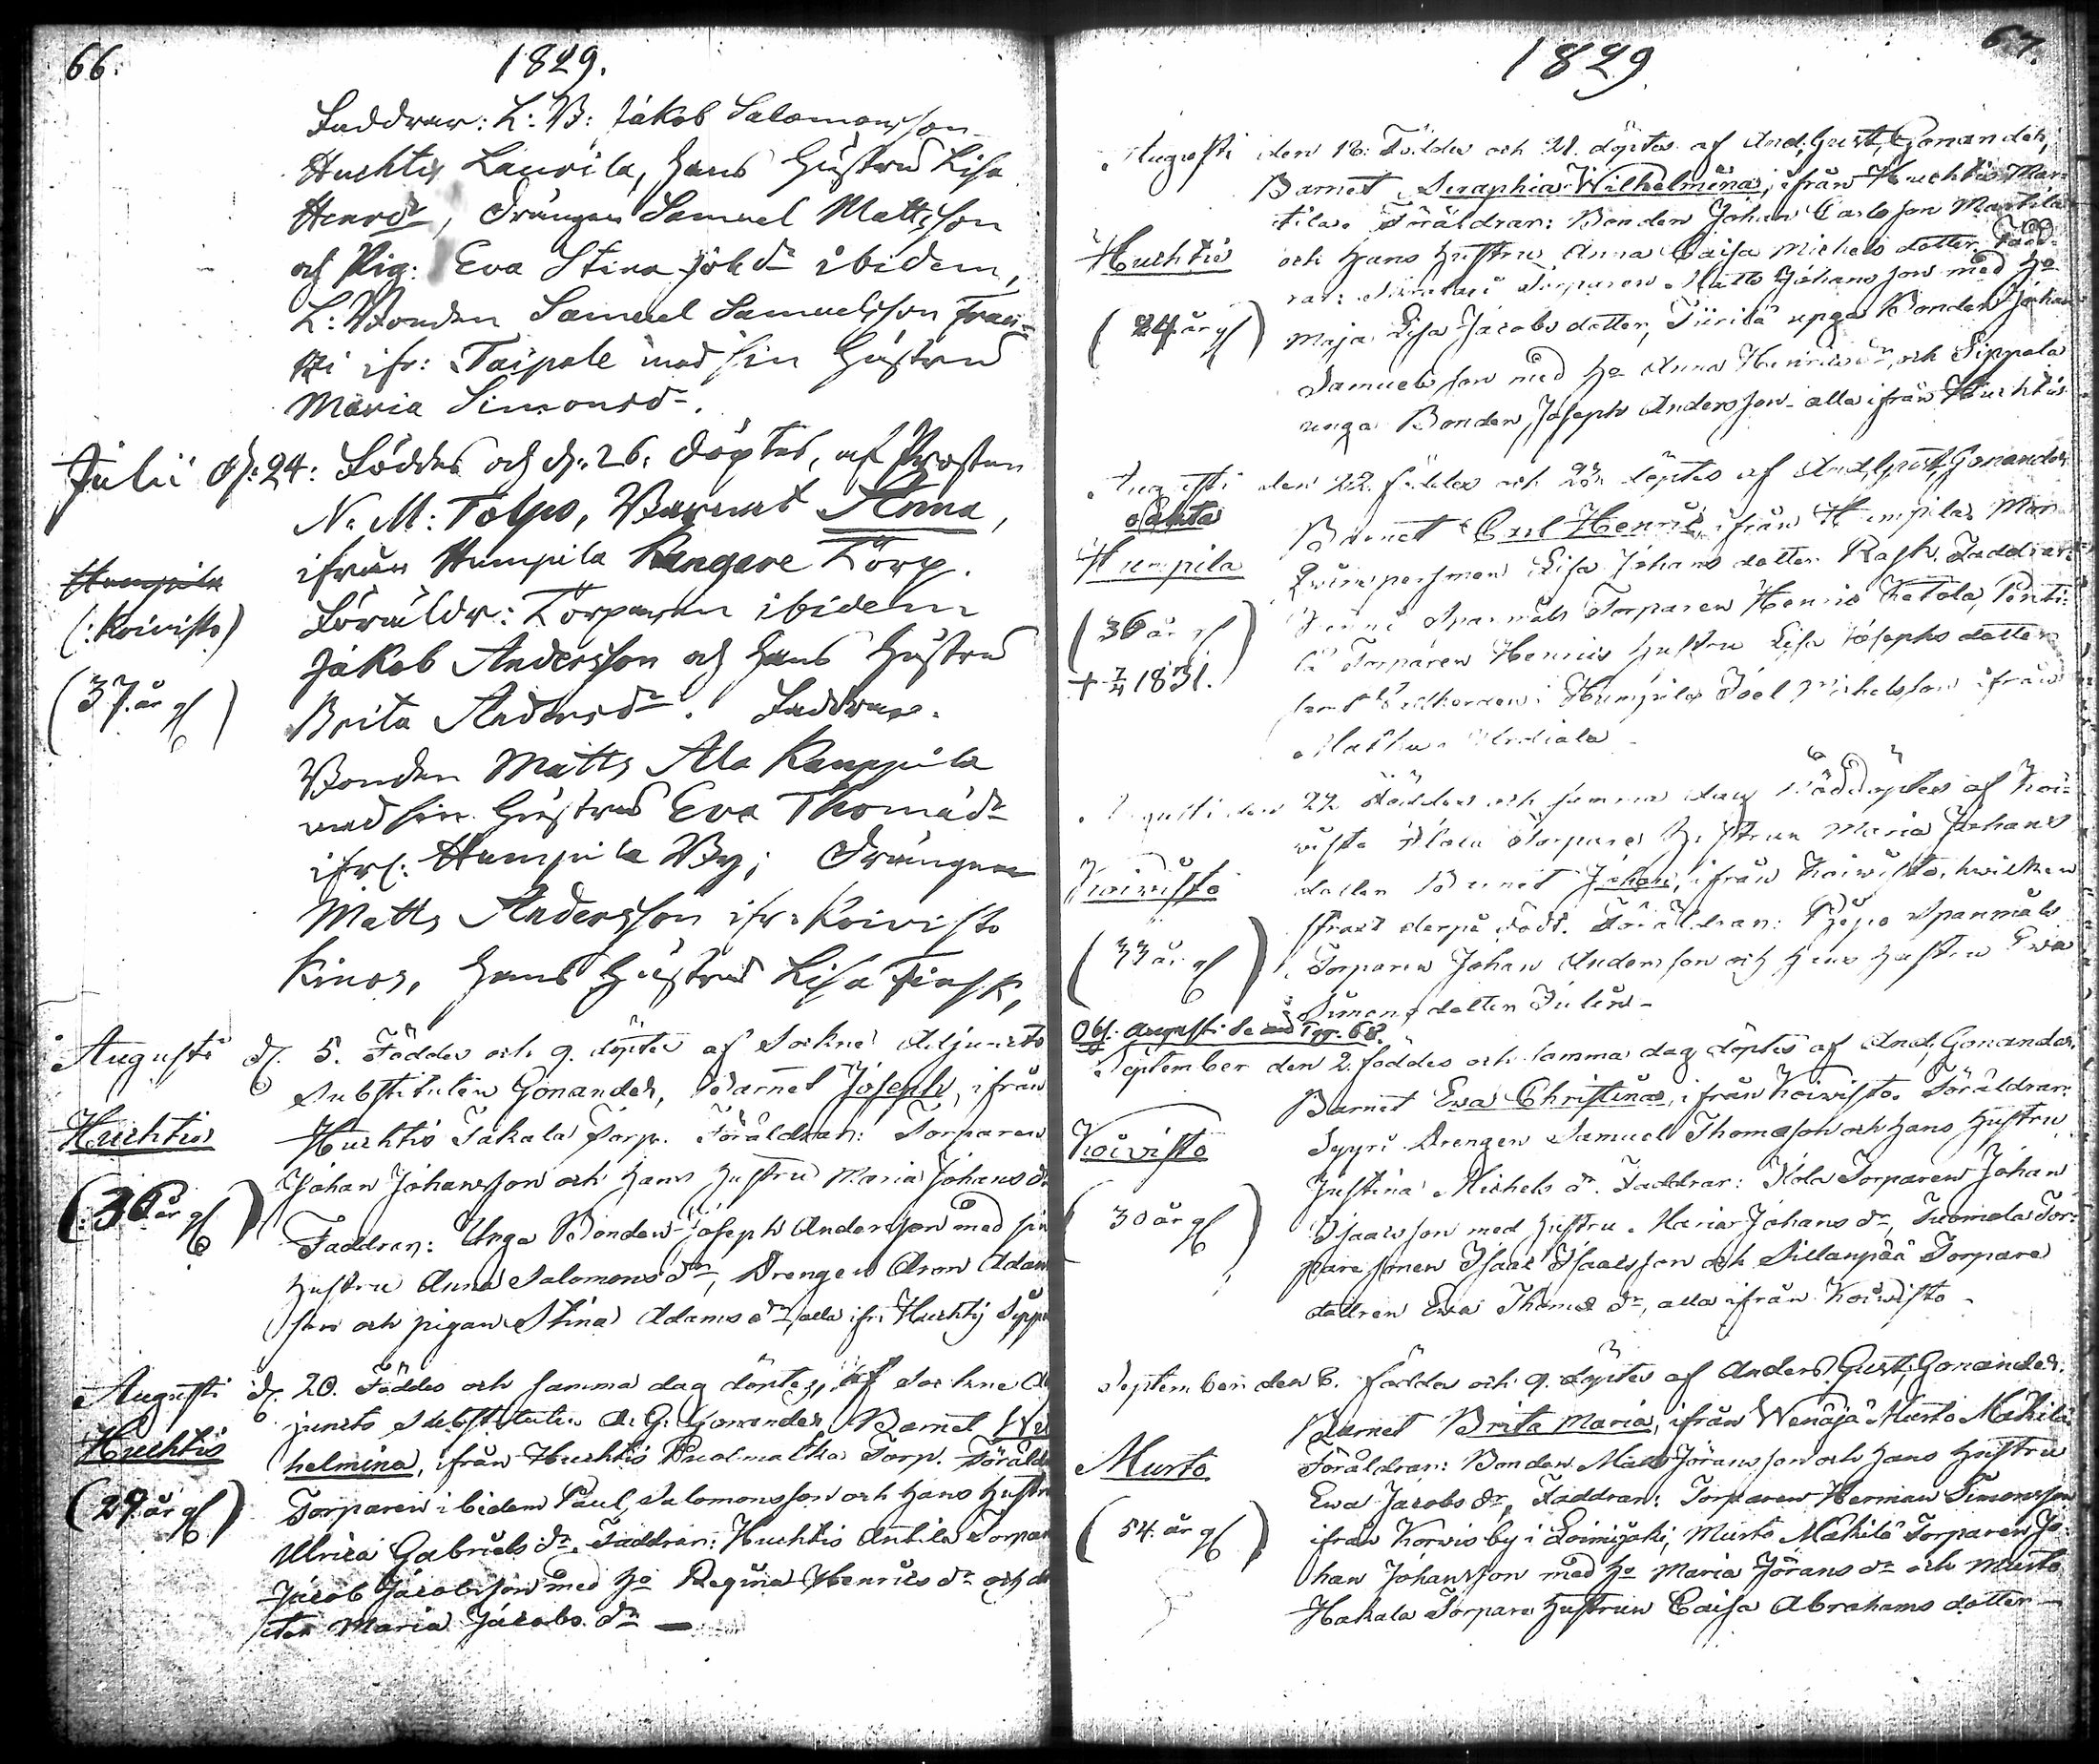 66.
1829.
Faddrar: L: B: Jakob Salomonsson
Huchtis Laurila, hans hustru Lisa
Henrsdr, Drängen Samuel Mattsson
och Pig: Eva Stina Johdr ibidem,
L: Bonden Samuel Samuelsson
ifr: Taipale med sin hustru
Maria Simonsd.
Julii d: 24: Föddes och d. 26. döptes, af Prosten
N. M: Tolpo, Barnet Anna,
ifrån Humpila Kangare Torp.
Humpila
(: Koivisto)
Föräldr: Torparen ibidem
Jakob Andersson och hans hustru
(37 år gl)
Brita Andersdr. Faddrar.
Bonden Matts Ala Kauppila
med sin hustru Eva Thomædr
ifr: Humpila By; Drängen
Matts Andersson ifr: Koivisto
hans hustru Lisa
Augusti d. 5. Föddes och 9. döptes af Sockne Adjuncts
Substituten Gonander, Barnet Joseph, ifrån
Huchtis
Huchtis Takala Torp. Föräldrar: Torparen
Johan Johansson och hans hustru Maria Johans d
(36 år gl)
Faddrar: Unga Bonden Joseph Andersson med sin
hustru Anna Salomons dr, Drengen Aron Adam
son och pigan Stina Adams dr, alla ifr. Huchtis
Augusti d. 20. Föddes och samma dag döptes, af Sockne Ad
juncts Substituten A. G. Gonander Barnet Wil
Huchtis
helmina, ifrån Huchtis Puolmatka Torp. Föräld
(29 år gl)
Torparen ibidem Paul Salomonsson och hans hustr
Ulrica Gabriels dr. Faddrar: Huchtis Anttila Torpar
Jacob Jacobsson med ho Regina Henrics dr och
ter Maria Jacobs dr
67.
1829
Augusti den 18. Föddes och 21. döptes af And. Gust. Gonander,
Barnet Seraphia Wilhelmina, ifrån Huchtis Mar
tila. Föräldrar: Bonden Johan Carlsson Marttila
Huchtis
och hans hustru Anna Caisa Michels dotter. Fadd
rar: Torparen Matts Johansson med ho
(24 år gl)
Maja Lisa Jacobs dotter, unga Bonden Johan
Samuelsson med ho Anna Henricsdr, och Sippola
unga Bonden Joseph Andersson alla ifrån Huchtis
Augusti den 22. föddes och 23. döptes af And. Gust. Gonander
oäkta
Barnet Carl Henric, ifrån Humpila. Mor
Humpila
Qvinspersonen Lisa Johans dotter Rask. Faddrar:
(36 år gl)
Torparen Henric Ketola,
Torparen Henrics hustru Lisa Josephs dotter
+ 7/4 1831.
samt i Humpila Joel Michelsson ifrån
Augusti den 27. Föddes och samma dag nöddöptes af Koi
visto Torpare hustrun Maria Johans
Koivisto
dotter Barnet Johan, ifrån Koivisto, hwilken
strax derpå dödt. Föräldrar:
(33 år gl)
Torparen Johan Andersson och hans hustru Ewa
Simons dotter
Obs: Augusti se pag. 68.
September den 2. föddes och samma dag döptes af And. Gonander
Barnet Ewa Christina, ifrån Koivisto. Föräldrar:
Koivisto
Syyri Drengen Samuel Thomasson och hans hustru
Justina Michels dr. Faddrar: Torparen Johan
(30 år gl)
Isaacsson med hustru Maria Johans dr, Tuomola Tor
pare sonen Isaac Isaacsson och Sillanpää Torpare
dottren Ewa Thomæ dr, alla ifrån Koivisto
September den 6. födda och 9. döptes af Anders Gust. Gonander
Barnet Brita Maria, ifrån Wenäjä Murto Mäkilä
Murto
Föräldrar: Bonden Matts Jöransson och hans hustru
Ewa Jacobs dr, Faddrar: Torparen Herman Simonsson
(54 år gl)
ifrån Korvis by i Loimijoki, Murto Mäkilä Torparen Jo
han Johansson med ho Maria Jörans dr och Murto
Hakala Torpare hustrun Caisa Abrahams dotter